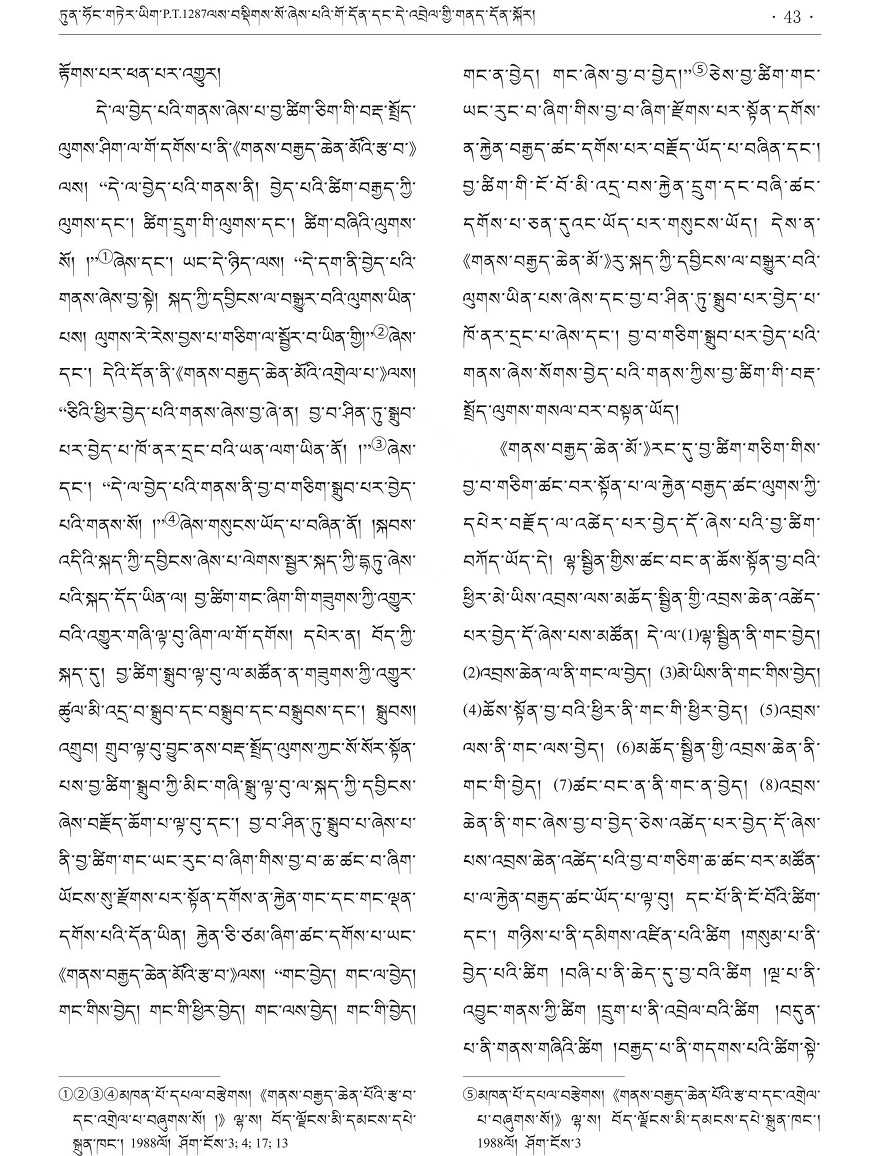 ཏུན་ཧོང་གཏེར་ཡིག་P.T.1287ལས་བསྡིགས་སོ་ཞེས་པའི་གོ་དོན་དང་དེ་འབྲེལ་གྱི་གནད་དོན་སྐོར།
· 43 ·
རྟོགས་པར་ཕན་པར་འགྱུར།
དེ་ལ་བྱེད་པའི་གནས་ཞེས་པ་བྱ་ཚིག་ཅིག་གི་བརྡ་སྤྲོད་
ལུགས་ཤིག་ལ་གོ་དགོས་པ་ནི་《གནས་བརྒྱད་ཆེན་མོའི་རྩ་བ་》
ལས། “དེ་ལ་བྱེད་པའི་གནས་ནི། བྱེད་པའི་ཚིག་བརྒྱད་ཀྱི་
ལུགས་དང་། ཚིག་དྲུག་གི་ལུགས་དང་། ཚིག་བཞིའི་ལུགས་
སོ། །”①ཞེས་དང་། ཡང་དེ་ཉིད་ལས། “དེ་དག་ནི་བྱེད་པའི་
གནས་ཞེས་བྱ་སྟེ། སྐད་ཀྱི་དབྱིངས་ལ་བསྒྱུར་བའི་ལུགས་ཡིན་
པས། ལུགས་རེ་རེས་བྱས་པ་གཅིག་ལ་སྦྱོར་བ་ཡིན་གྱི།”②ཞེས་
དང་། དེའི་དོན་ནི་《གནས་བརྒྱད་ཆེན་མོའི་འགྲེལ་པ་》ལས།
“ཅིའི་ཕྱིར་བྱེད་པའི་གནས་ཞེས་བྱ་ཞེ་ན། བྱ་བ་ཤིན་ཏུ་སྒྲུབ་
པར་བྱེད་པ་ཁོ་ནར་དྲང་བའི་ཡན་ལག་ཡིན་ནོ། །”③ཞེས་
དང་། “དེ་ལ་བྱེད་པའི་གནས་ནི་བྱ་བ་གཅིག་སྒྲུབ་པར་བྱེད་
པའི་གནས་སོ། །”④ཞེས་གསུངས་ཡོད་པ་བཞིན་ནོ། །སྐབས་
འདིའི་སྐད་ཀྱི་དབྱིངས་ཞེས་པ་ལེགས་སྦྱར་སྐད་ཀྱི་དྷཏུ་ཞེས་
པའི་སྐད་དོད་ཡིན་ལ། བྱ་ཚིག་གང་ཞིག་གི་གཟུགས་ཀྱི་འགྱུར་
བའི་འགྱུར་གཞི་ལྟ་བུ་ཞིག་ལ་གོ་དགོས། དཔེར་ན། བོད་ཀྱི་
སྐད་དུ། བྱ་ཚིག་སྒྲུབ་ལྟ་བུ་ལ་མཚོན་ན་གཟུགས་ཀྱི་འགྱུར་
ཚུལ་མི་འདྲ་བ་སྒྲུབ་དང་བསྒྲུབ་དང་བསྒྲུབས་དང་། སྒྲུབས།
འགྲུབ། གྲུབ་ལྟ་བུ་བྱུང་ནས་བརྡ་སྤྲོད་ལུགས་ཀྱང་སོ་སོར་སྟོན་
པས་བྱ་ཚིག་སྒྲུབ་ཀྱི་མིང་གཞི་སྒྲུ་ལྟ་བུ་ལ་སྐད་ཀྱི་དབྱིངས་
ཞེས་བརྗོད་ཆོག་པ་ལྟ་བུ་དང་། བྱ་བ་ཤིན་ཏུ་སྒྲུབ་པ་ཞེས་པ་
ནི་བྱ་ཚིག་གང་ཡང་རུང་བ་ཞིག་གིས་བྱ་བ་ཆ་ཚང་བ་ཞིག་
ཡོངས་སུ་རྫོགས་པར་སྟོན་དགོས་ན་རྐྱེན་གང་དང་གང་ལྡན་
དགོས་པའི་དོན་ཡིན། རྐྱེན་ཅི་ཙམ་ཞིག་ཚང་དགོས་པ་ཡང་
《གནས་བརྒྱད་ཆེན་མོའི་རྩ་བ་》ལས། “གང་བྱེད། གང་ལ་བྱེད།
གང་གིས་བྱེད། གང་གི་ཕྱིར་བྱེད། གང་ལས་བྱེད། གང་གི་བྱེད།
གང་ན་བྱེད། གང་ཞེས་བྱ་བ་བྱེད།”⑤ཅེས་བྱ་ཚིག་གང་
ཡང་རུང་བ་ཞིག་གིས་བྱ་བ་ཞིག་རྫོགས་པར་སྟོན་དགོས་
ན་རྐྱེན་བརྒྱད་ཚང་དགོས་པར་བརྗོད་ཡོད་པ་བཞིན་དང་།
བྱ་ཚིག་གི་ངོ་བོ་མི་འདྲ་བས་རྐྱེན་དྲུག་དང་བཞི་ཚང་
དགོས་པ་ཅན་དུའང་ཡོད་པར་གསུངས་ཡོད། དེས་ན་
《གནས་བརྒྱད་ཆེན་མོ་》རུ་སྐད་ཀྱི་དབྱིངས་ལ་བསྒྱུར་བའི་
ལུགས་ཡིན་པས་ཞེས་དང་བྱ་བ་ཤིན་ཏུ་སྒྲུབ་པར་བྱེད་པ་
ཁོ་ནར་དྲང་པ་ཞེས་དང་། བྱ་བ་གཅིག་སྒྲུབ་པར་བྱེད་པའི་
གནས་ཞེས་སོགས་བྱེད་པའི་གནས་ཀྱིས་བྱ་ཚིག་གི་བརྡ་
སྤྲོད་ལུགས་གསལ་བར་བསྟན་ཡོད།
《གནས་བརྒྱད་ཆེན་མོ་》རང་དུ་བྱ་ཚིག་གཅིག་གིས་
བྱ་བ་གཅིག་ཚང་བར་སྟོན་པ་ལ་རྐྱེན་བརྒྱད་ཚང་ལུགས་ཀྱི་
དཔེར་བརྗོད་ལ་འཚེད་པར་བྱེད་དོ་ཞེས་པའི་བྱ་ཚིག་
བཀོད་ཡོད་དེ། ལྷ་སྦྱིན་གྱིས་ཚང་བང་ན་ཆོས་སྟོན་བྱ་བའི་
ཕྱིར་མེ་ཡིས་འབྲས་ལས་མཆོད་སྦྱིན་གྱི་འབྲས་ཆེན་འཚེད་
པར་བྱེད་དོ་ཞེས་པས་མཚོན། དེ་ལ་(1)ལྷ་སྦྱིན་ནི་གང་བྱེད།
(2)འབྲས་ཆེན་ལ་ནི་གང་ལ་བྱེད། (3)མེ་ཡིས་ནི་གང་གིས་བྱེད།
(4)ཆོས་སྟོན་བྱ་བའི་ཕྱིར་ནི་གང་གི་ཕྱིར་བྱེད། (5)འབྲས་
ལས་ནི་གང་ལས་བྱེད། (6)མཆོད་སྦྱིན་གྱི་འབྲས་ཆེན་ནི་
གང་གི་བྱེད། (7)ཚང་བང་ན་ནི་གང་ན་བྱེད། (8)འབྲས་
ཆེན་ནི་གང་ཞེས་བྱ་བ་བྱེད་ཅེས་འཚེད་པར་བྱེད་དོ་ཞེས་
པས་འབྲས་ཆེན་འཚེད་པའི་བྱ་བ་གཅིག་ཆ་ཚང་བར་མཚོན་
པ་ལ་རྐྱེན་བརྒྱད་ཚང་ཡོད་པ་ལྟ་བུ། དང་པོ་ནི་ངོ་བོའི་ཚིག་
དང་། གཉིས་པ་ནི་དམིགས་འཛིན་པའི་ཚིག །གསུམ་པ་ནི་
བྱེད་པའི་ཚིག །བཞི་པ་ནི་ཆེད་དུ་བྱ་བའི་ཚིག །ལྔ་པ་ནི་
འབྱུང་གནས་ཀྱི་ཚིག །དྲུག་པ་ནི་འབྲེལ་བའི་ཚིག །བདུན་
པ་ནི་གནས་གཞིའི་ཚིག །བརྒྱད་པ་ནི་གདགས་པའི་ཚིག་སྟེ་
①②③④མཁན་པོ་དཔལ་བརྩེགས། 《གནས་བརྒྱད་ཆེན་པོའི་རྩ་བ་
དང་འགྲེལ་པ་བཞུགས་སོ། །》 ལྷ་ས། བོད་ལྗོངས་མི་དམངས་དཔེ་
སྐྲུན་ཁང་། 1988ལོ། ཤོག་ངོས་3; 4; 17; 13
⑤མཁན་པོ་དཔལ་བརྩེགས། 《གནས་བརྒྱད་ཆེན་པོའི་རྩ་བ་དང་འགྲེལ་
པ་བཞུགས་སོ།》 ལྷ་ས། བོད་ལྗོངས་མི་དམངས་དཔེ་སྐྲུན་ཁང་།
1988ལོ། ཤོག་ངོས་3